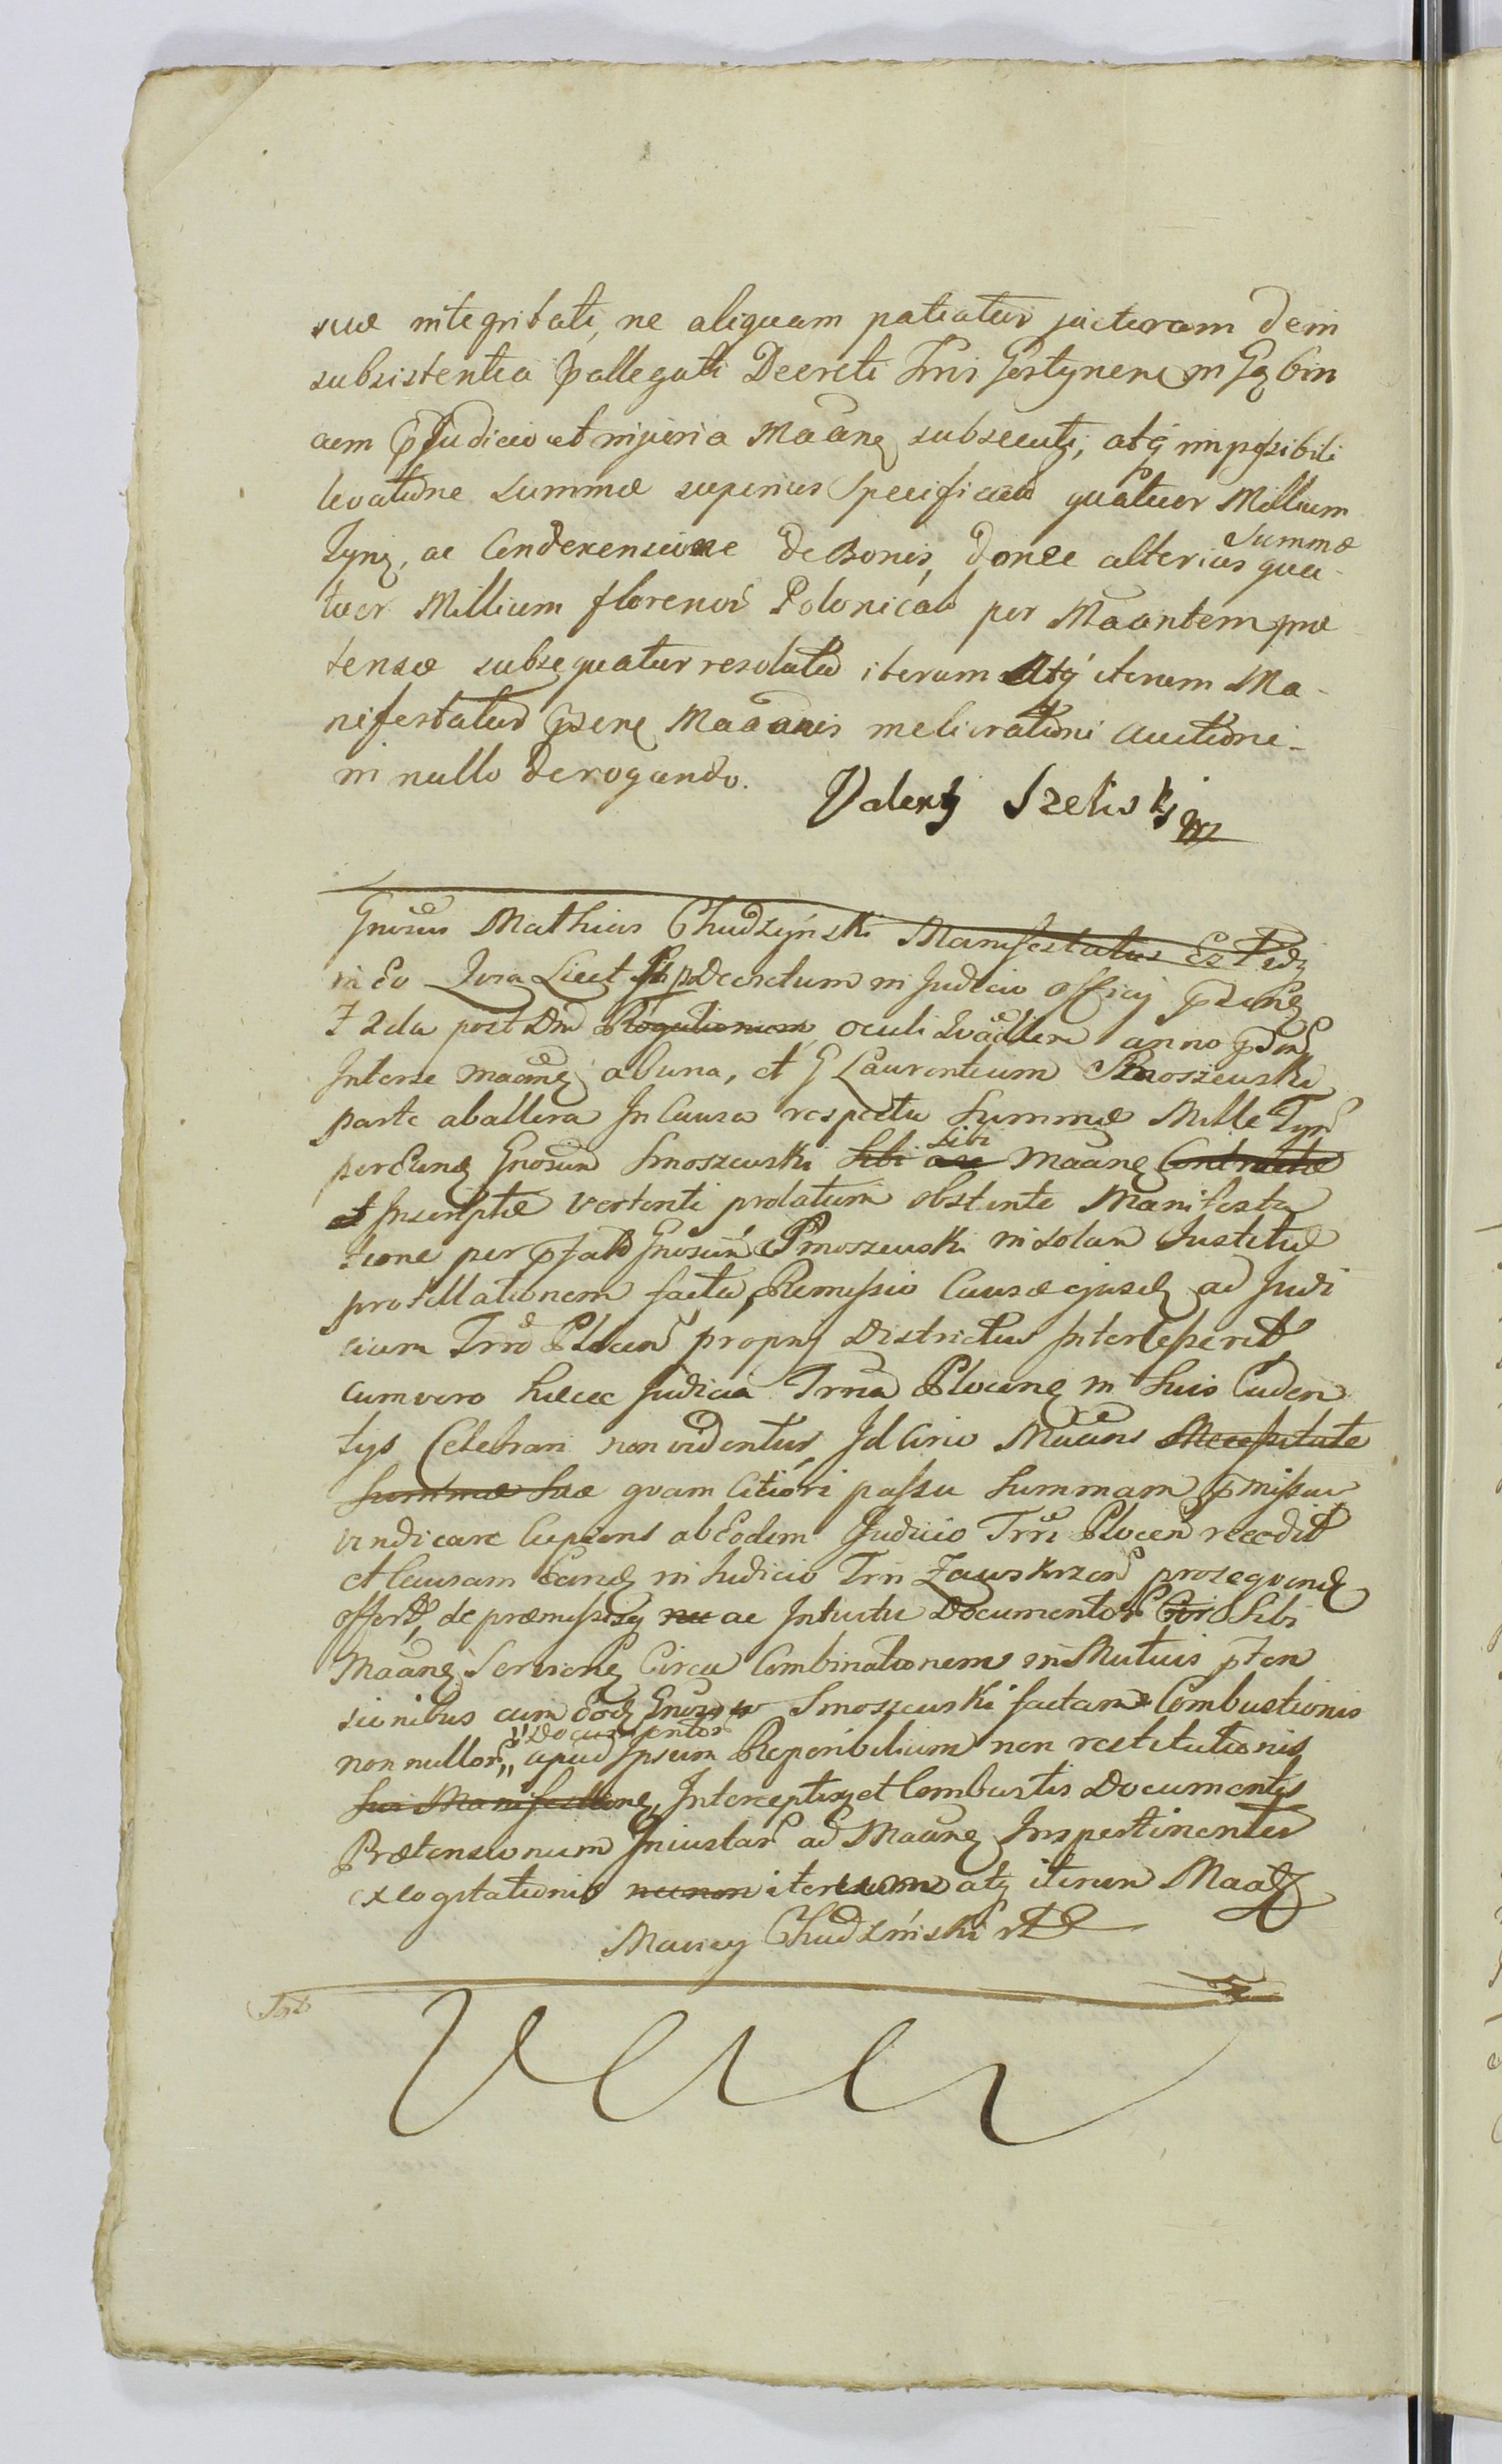 suæ integritati, ne aliquam patiatur jacturam dein
subsistentia pallegati Decreti Trris Gostynen in Gąbin
aem pJudicio et injuria Maane subsecuti, atq impossibili
levatione summæ superius specificatæ quatuor Millium
Tynf, ac Condescensione de Bonis, donec alterius Summæ qua-
tuor Millium florenor Polonical per Maantem præ
tensæ subsequatur resolutio iterum Atq iterum Ma-
nifestatur psene Maaonis meliorationi auctioni-
in nullo derogando.
Valenty Szeliski mp
Gnosus Mathias Chudzyński Manifestatus Est Idq
in Eo Ivra Licet Decretum in Judicio officij pzene
F 2da post Dm Rogationum oculi anno
Interse Maane ab una, et G Laurentium Smoszewski
parte ab altera In Causa respectu Summæ Mille Tynf
per Eund Gnosum Smoszewski Sibi Sibi Maane Contractæ
et Inscriptæ vertenti prolatum obstente Manifesta
tione per pfat Gnosum Smoszewski in solam Justitiæ
protellationem facta, Remissio Causæ ejusd ad Judi
cium Trrē Plocen proprij Districtus Intercesserit
cum vero hæcce Judicia Trria Plocens in Suis Caden
tijs Celebrari non videntur, Id Circo Maans Necessitate
Summæ Suæ quam Citiori passu Summam pmissam
vindicare Cupiens ab Eodem Judicio Trri Plocen recedit
et Causam Eand in Judicio Trri Zawskrzen prosequend
offert, de præmissisq ac Intuitu Documentor Sibi
Maane Servien Circa Combinationem in Mutuis pten
sionibus cum eod Gnoso Smoszewski factam Combustionis
non nullor, Documentor apud Ipsum Reperibilium non restitutionis
Sui Manifestione, Interceptis et Combustis Documentis
Prætensionum Iniustar ad Maane Inspertinenter
excogitationis necnon iterum atq iterum Maat
Maciey Chudzinski